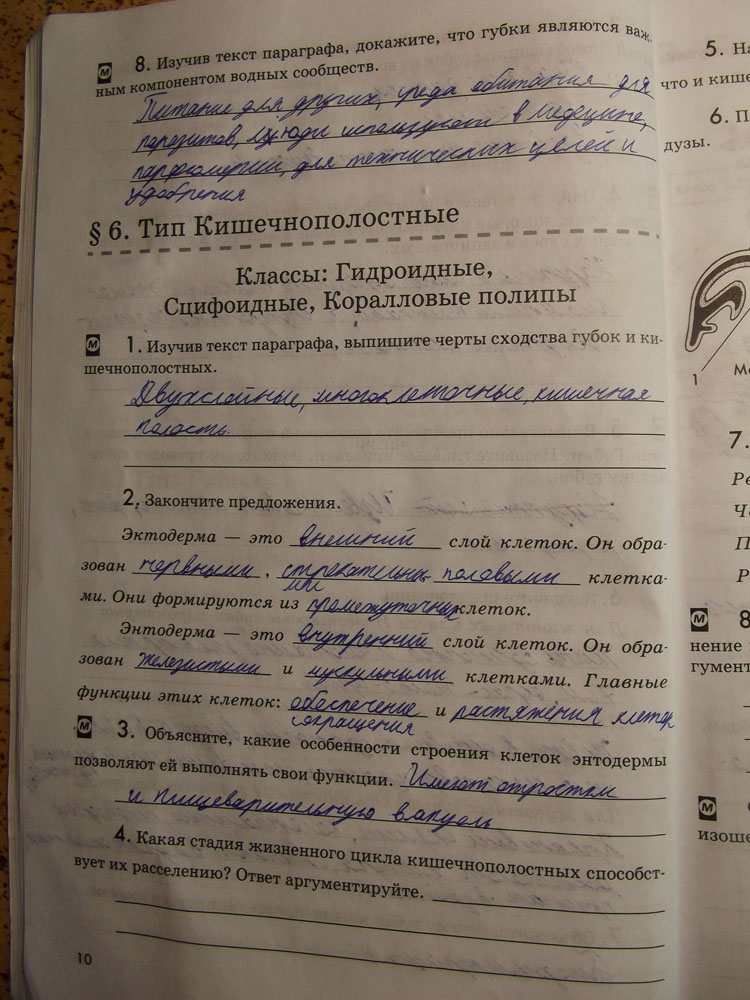 8. Изучив текст параграфа, докажите, что губки являются важ-
ным компонентом водных сообществ.
Питание для других, среда обитания для
паразитов, люди используют в медицине,
парфюмерии, для технических целей и
удобрения
§ 6. Тип Кишечнополостные
Классы: Гидроидные,
Сцифоидные, Коралловые полипы
М 1. Изучив текст параграфа, выпишите черты сходства губок и ки-
шечнополостных.
Двухслойные, многоклеточные, кишечная
полость.
2. Закончите предложения.
Эктодерма — это внешний слой клеток. Он обра-
зован нервными, стрекательны половыми клетка-
ми
ми. Они формируются из промежуточных клеток.
Энтодерма — это внутренний слой клеток. Он обра-
зован железистыми и мускульными клетками. Главные
функции этих клеток: обеспечение и растяжения клеток
сокращения
М 3. Объясните, какие особенности строения клеток энтодермы
позволяют ей выполнять свои функции. Имеют отростки
и пищеварительную вакуоль
4. Какая стадия жизненного цикла кишечнополостных способст-
вует их расселению? Ответ аргументируйте.
10
5. На
что и кише
6. П
дузы.
1
М
7.
Ре
Че
П
Р
М 8
нение
гумент
М
изоше